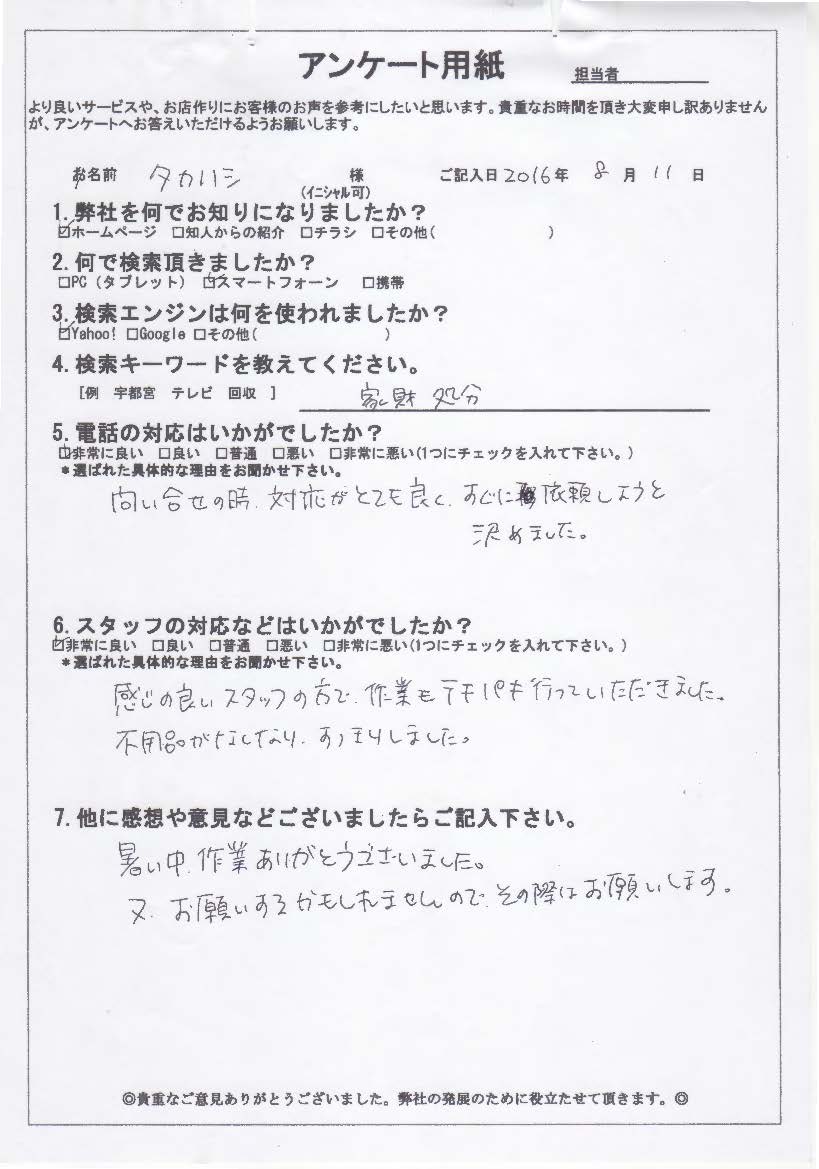 アンケート用紙
担当者
より良いサービスや、お店作りにお客様のお声を参考にしたいと思います。貴重なお時間を頂き大変申し訳ありません
が、アンケートへお答えいただけるようお願いします。
お名前 タカハシ 様 ご記入日 2016年 8月 11日
(イニシャル可)
1. 弊社を何でお知りになりましたか？
☑ホームページ □知人からの紹介 □チラシ □その他( )
2. 何で検索頂きましたか？
□PC（タブレット） ☑スマートフォーン □携帯
3. 検索エンジンは何を使われましたか？
☑Yahoo! □Google □その他( )
4. 検索キーワードを教えてください。
[例 宇都宮 テレビ 回収 ] 家財 処分
5. 電話の対応はいかがでしたか？
☑非常に良い □良い □普通 □悪い □非常に悪い(1つにチェックを入れて下さい。)
＊選ばれた具体的な理由をお聞かせ下さい。
問い合せの時、対応がとても良く、すぐに依頼しようと
決めました。
6. スタッフの対応などはいかがでしたか？
☑非常に良い □良い □普通 □悪い □非常に悪い(1つにチェックを入れて下さい。)
＊選ばれた具体的な理由をお聞かせ下さい。
感じの良いスタッフの方で、作業もテキパキ行っていただきました。
不用品がなくなり、すっきりしました。
7. 他に感想や意見などございましたらご記入下さい。
暑い中、作業ありがとうございました。
又、お願いするかもしれませんので、その際はお願いします。
◎貴重なご意見ありがとうございました。弊社の発展のために役立たせて頂きます。◎